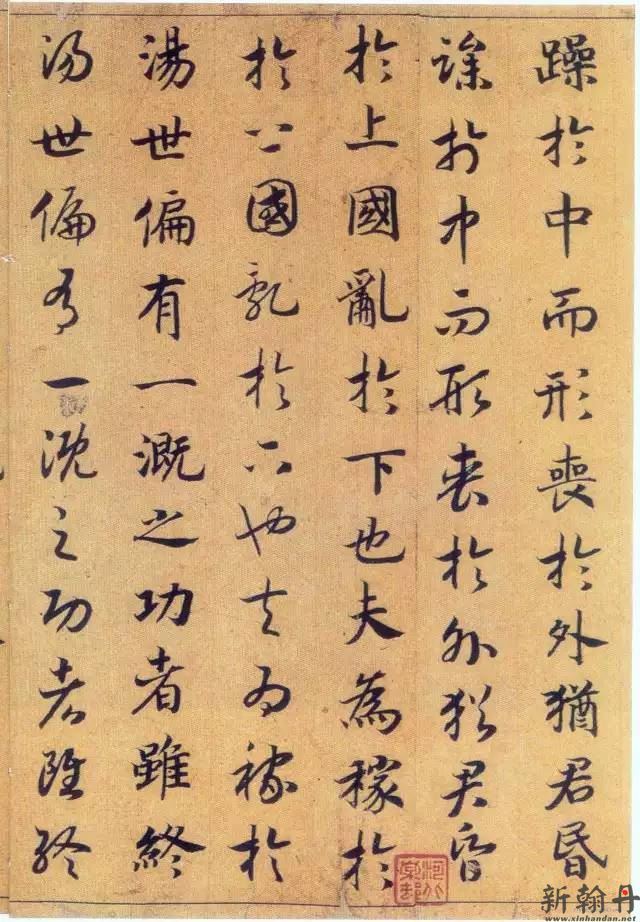 躁於中而形喪於外猶君昏
躁於中而形喪於外猶君昏
於上國亂於下也夫為稼於
於上國亂於下也夫為稼於
湯世偏有一溉之功者雖終
湯世偏有一溉之功者雖終
新翰丹
www.xinhandan.net